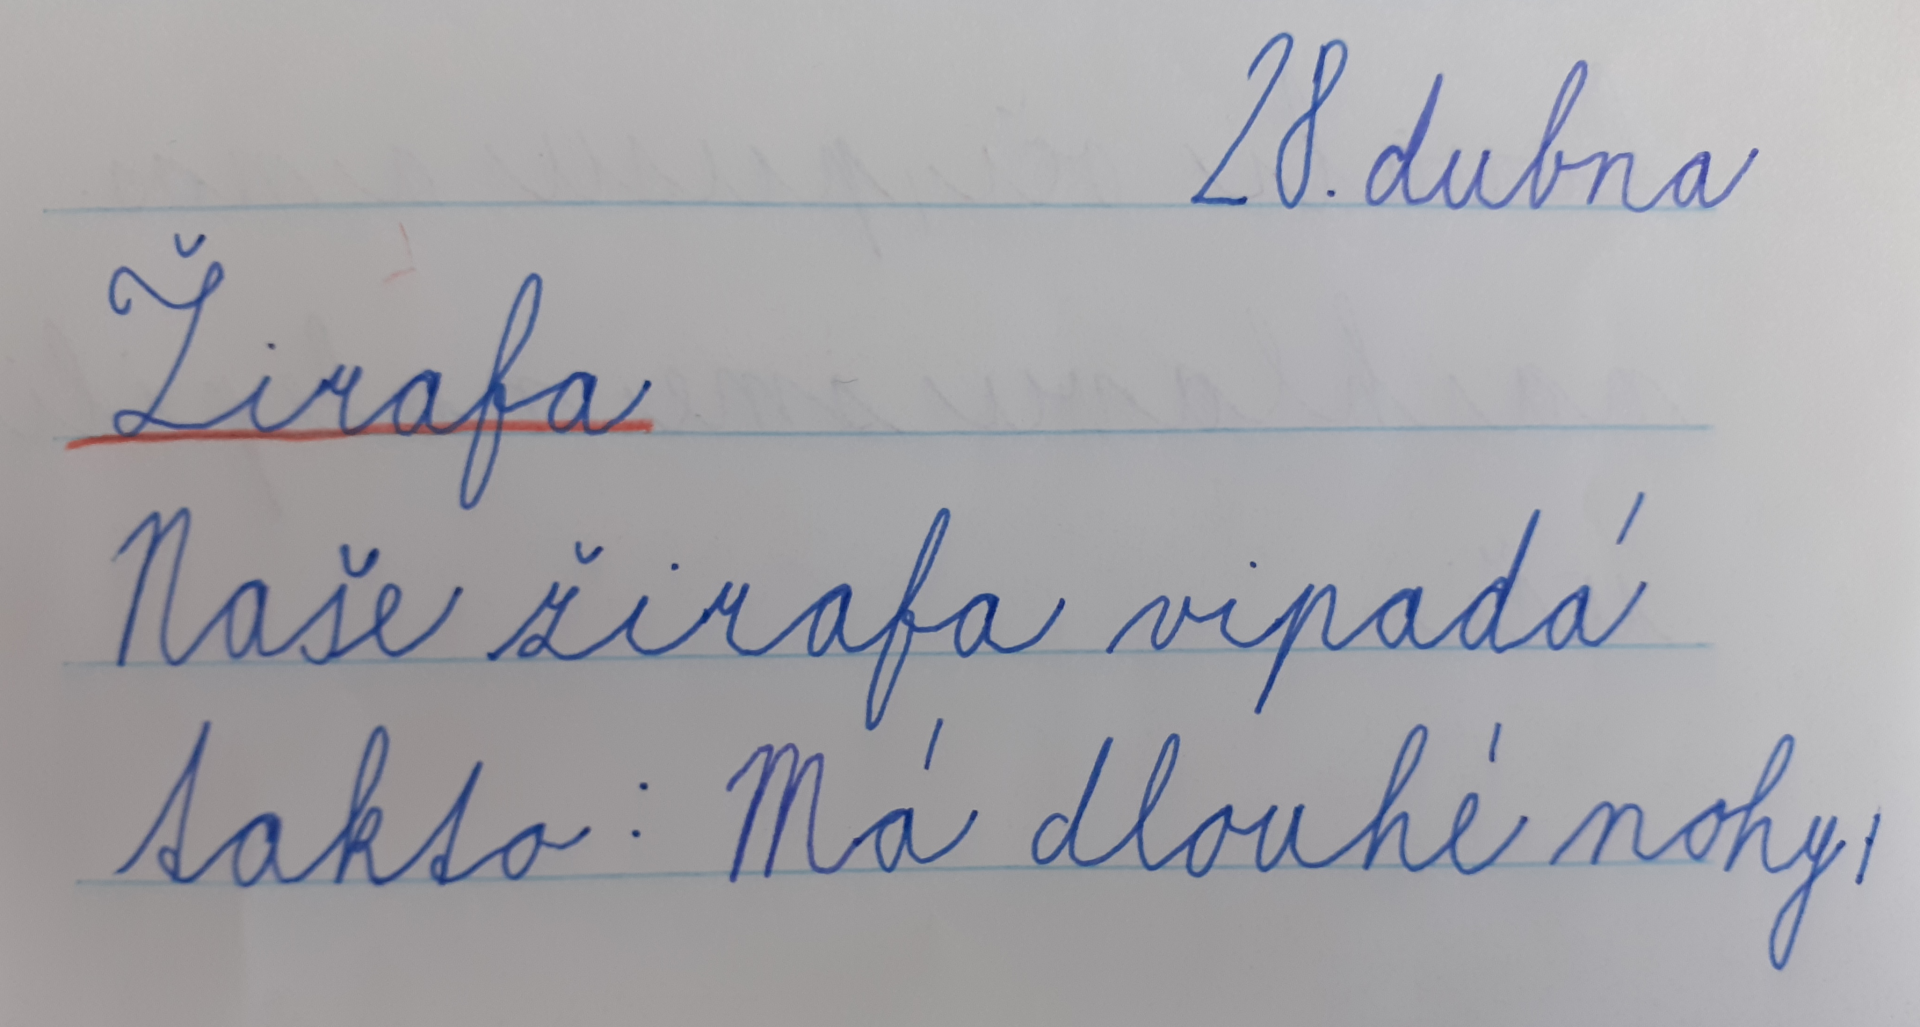 28. dubna
Žirafa
Naše žirafa vipadá
takto: Má dlouhé nohy,